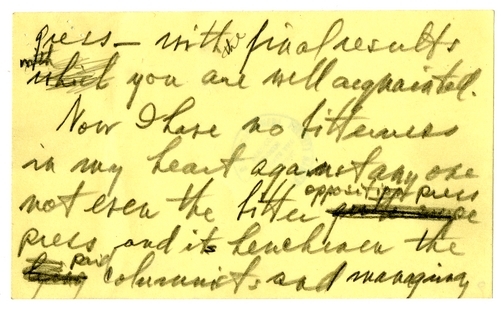 gress — with the final results
with which you are well acquainted.
Now I have no bitterness
in my heart against any one
not even the bitter opposition press
press and its henchmen the
lying paid columnists and managing